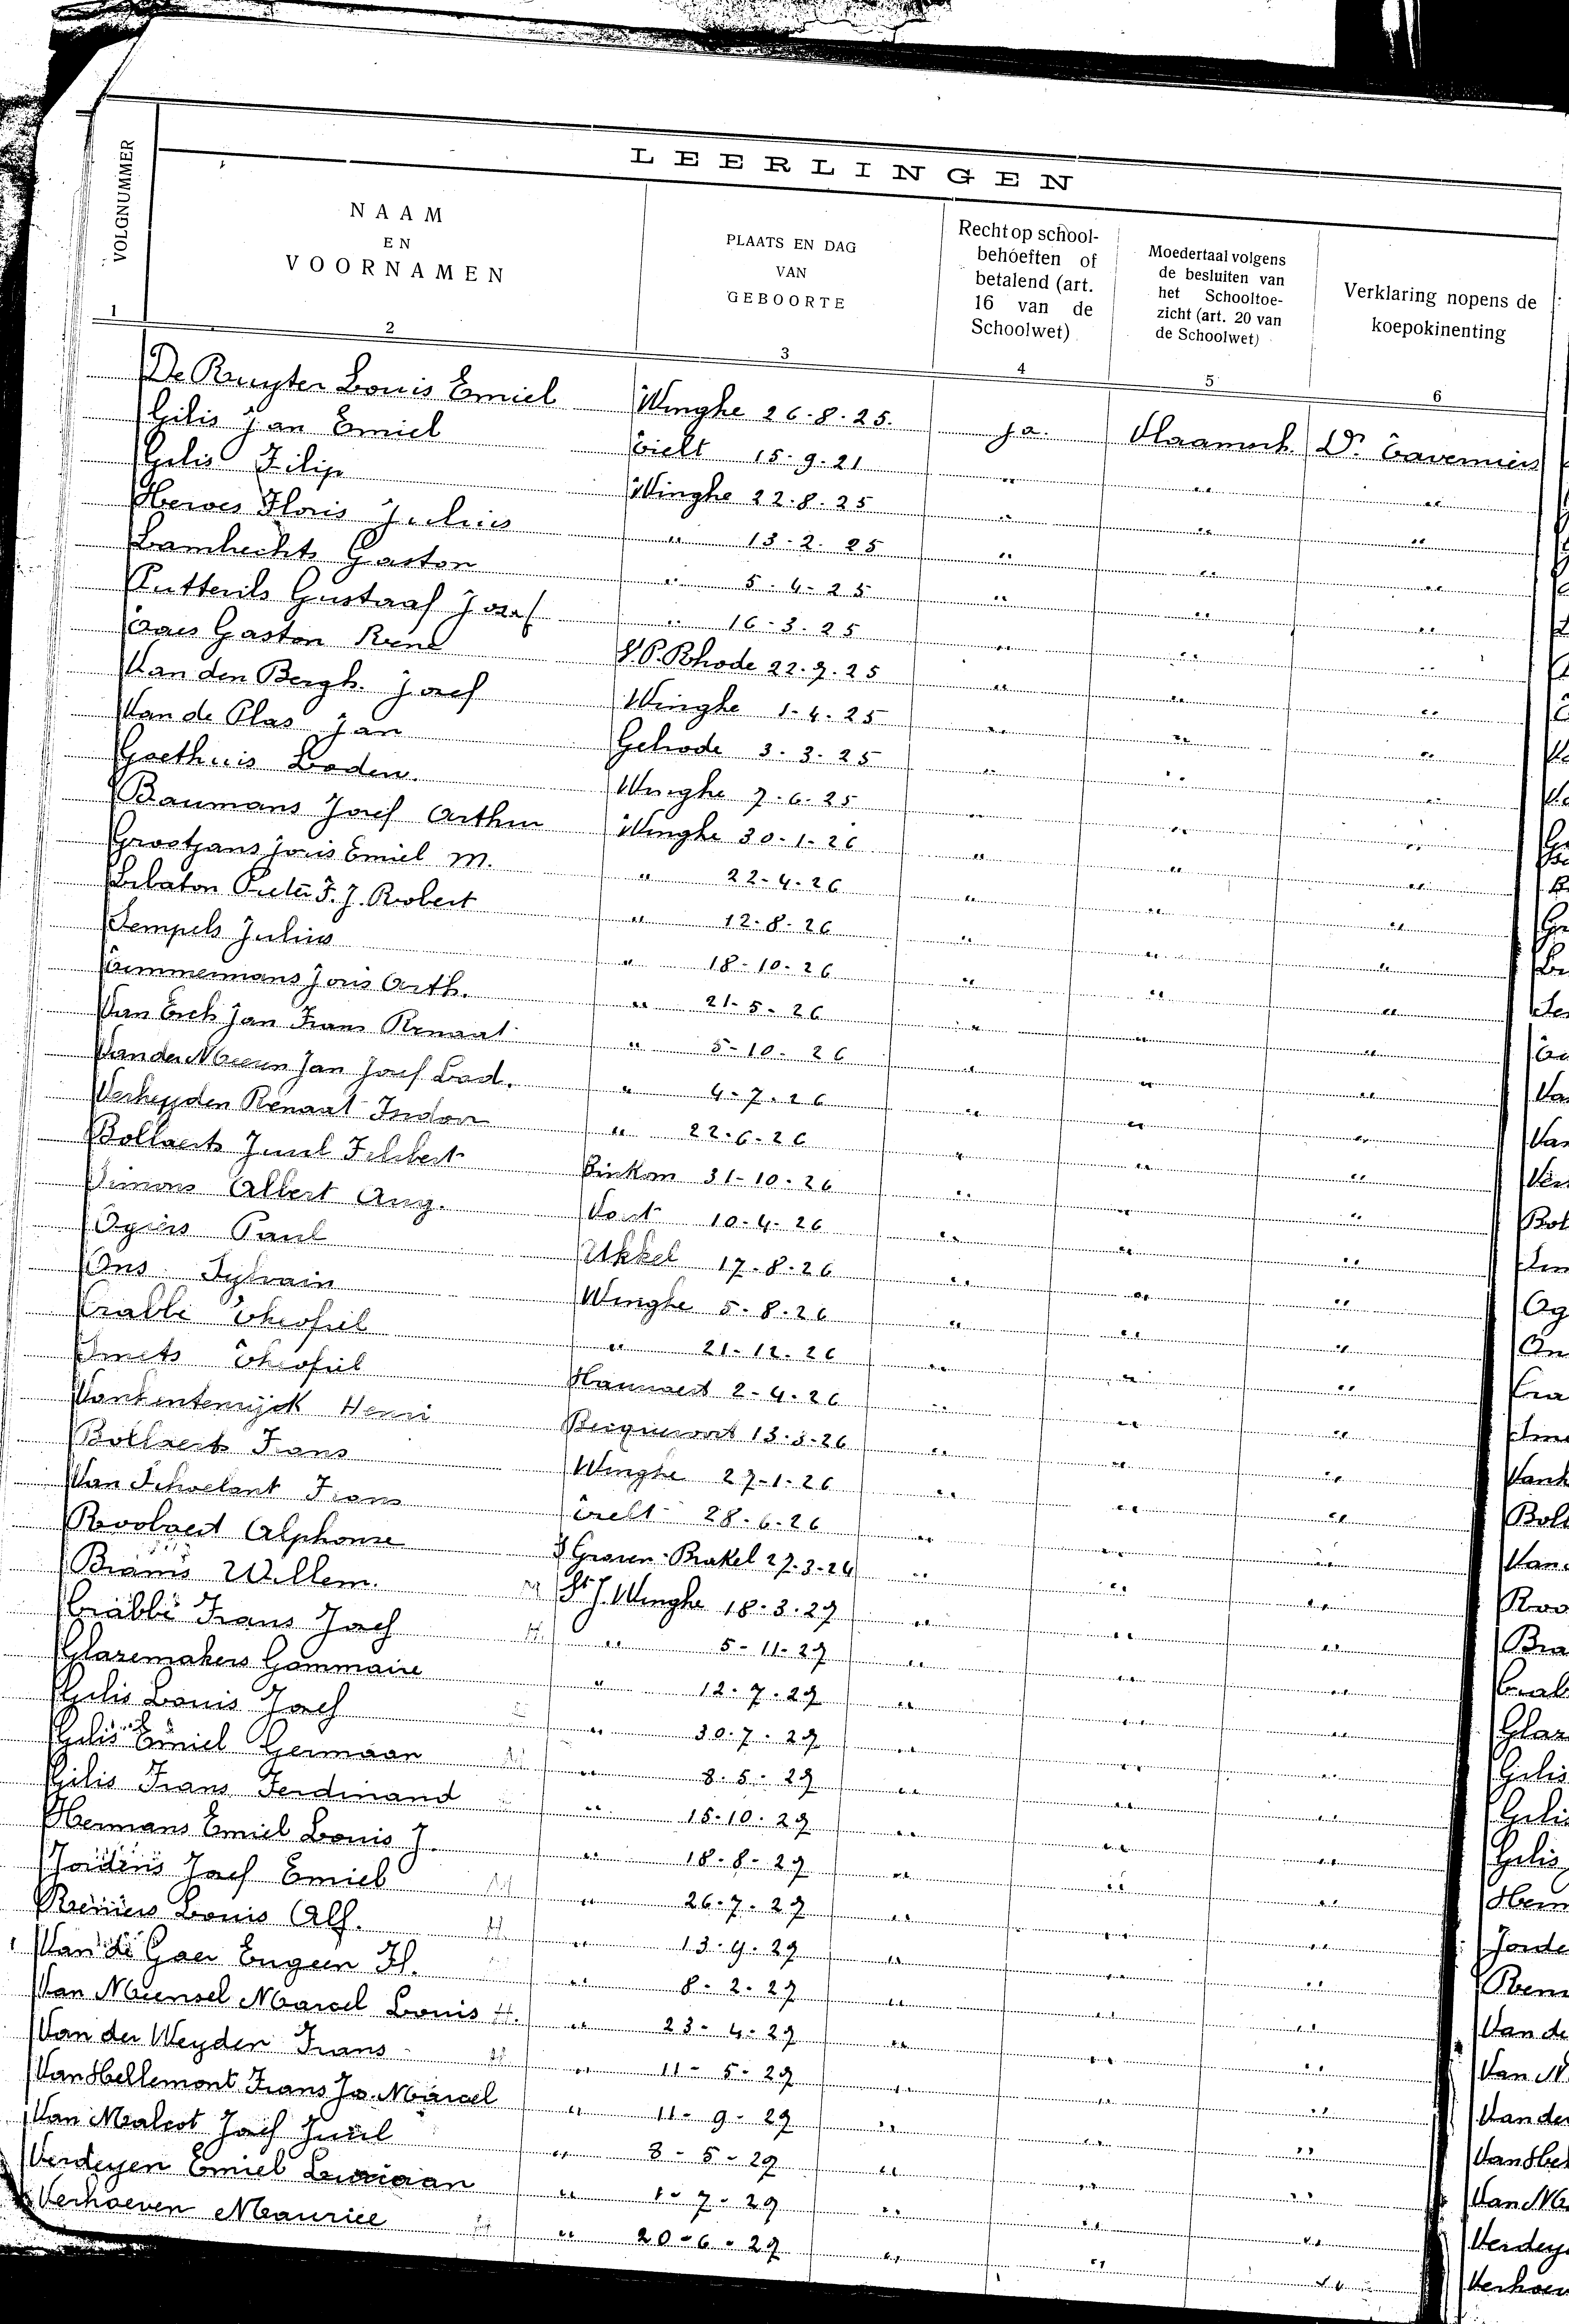 LEERLINGEN
VOLGNUMMER
NAAM
EN
VOORNAMEN
PLAATS EN DAG
VAN
GEBOORTE
Recht op school-
behoeften of
betalend (art.
16 van de
Schoolwet)
Moedertaal volgens
de besluiten van
het Schooltoe-
zicht (art. 20 van
de Schoolwet)
Verklaring nopens de
koepokinenting
1 2 3 4 5 6
De Ruyter Louis Emiel Winghe 26-8-25. ja. Vlaamsch. Dr. Taverniers
Gilis Jan Emiel Tielt 15-9-21 " " "
Gilis Filip Winghe 22-8-25 " " "
Herwes Floris Julius " 13-2-25 " " "
Lambechts Gaston " 5-4-25 " " "
Putterils Gustaaf Jozef " 16-3-25 " " "
Taes Gaston René St. P. Rhode 22-9-25 " " "
Van den Bergh. Jozef Winghe 1-4-25 " " "
Van de Plas Jan Gelrode 3-3-25 " " "
Goethuis Lodew. Winghe 7-6-25 " " "
Baumans Josef Arthur Winghe 30-1-26 " " "
Grootjans Joris Emiel M. " 22-4-26 " " "
Lebaton Pieter F. J. Robert " 12-8-26 " " "
Sempels Julius " 18-10-26 " " "
Timmermans Joris Arth. " 21-5-26 " " "
Van Erck Jan Frans Renaat " 5-10-26 " " "
Van der Meeren Jan Josef Lod. " 4-7-26 " " "
Verheyden Renaat Isidoor " 22-6-26 " " "
Bollaerts Juul Filibert Binkom 31-10-26 " " "
Simons Albert Aug. Vorst 10-4-26 " " "
Ogiers Paul Ukkel 17-8-26 " " "
Ons Sylvain Winghe 5-8-26 " " "
Crabbé Theofiel " 21-12-26 " " "
Smets Theofiel Hauwaert 2-4-26 " " "
Vankentenrijck Henri Becquevoort 13-3-26 " " "
Bollaerts Frans Winghe 27-1-26 " " "
Van Schoelant Frans Tielt 28-6-26 " " "
Roobaert Alphonse S Graven-Brakel 27-3-24 " " "
Brams Willem. M St. J. Winghe 18-3-27 " " "
Crabbé Frans Josef H. " 5-11-27 " " "
Glazemakers Gommaire " 12-7-27 " " "
Gilis Louis Josef " 30-7-27 " " "
Gilis Emiel Germaan M " 8-5-27 " " "
Gilis Frans Ferdinand " 15-10-27 " " "
Hermans Emiel Louis J. " 18-8-27 " " "
Jordens Josef Emiel M " 26-7-27 " " "
Reniers Louis Alf. H " 13-9-27 " " "
Van de Gaer Eugeen H. " 8-2-27 " " "
Van Meensel Marcel Louis H. " 23-4-27 " " "
Van der Weyden Frans " 11-5-27 " " "
Van Hellemont Frans Jo. Marcel " 11-9-27 " " "
Van Malcot Josef Juul " 8-5-27 " " "
Verdeyen Emiel Luciaan " 1-7-27 " " "
Verhoeven Maurice H " 20-6-27 " " "